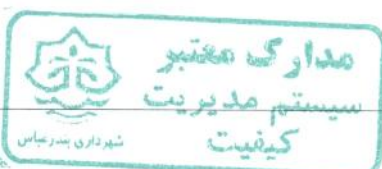 مدارک معتبر
سیستم مدیریت
کیفیت
شهرداری بندرعباس